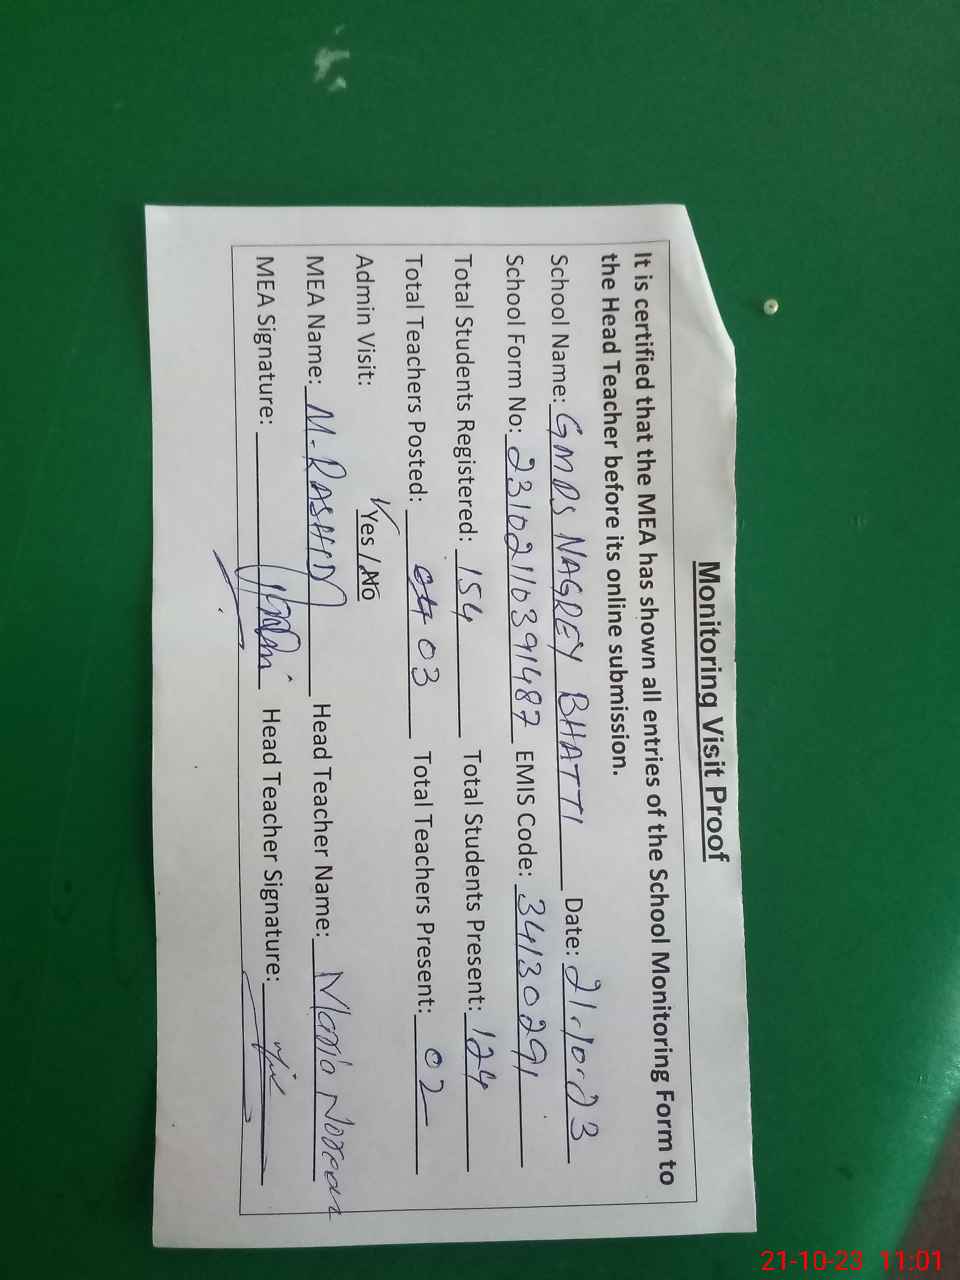 Monitoring Visit Proof
It is certified that the MEA has shown all entries of the School Monitoring Form to
the Head Teacher before its online submission.
School Name: GMPS NAGREY BHATTI Date: 21-10-23
School Form No: 23102110391487 EMIS Code: 34130291
Total Students Registered: 154 Total Students Present: 124
Total Teachers Posted: 04 03 Total Teachers Present: 02
Admin Visit: Yes / No
MEA Name: M. RASHID Head Teacher Name: Maria Noreen
MEA Signature: Head Teacher Signature:
21-10-23 11:01